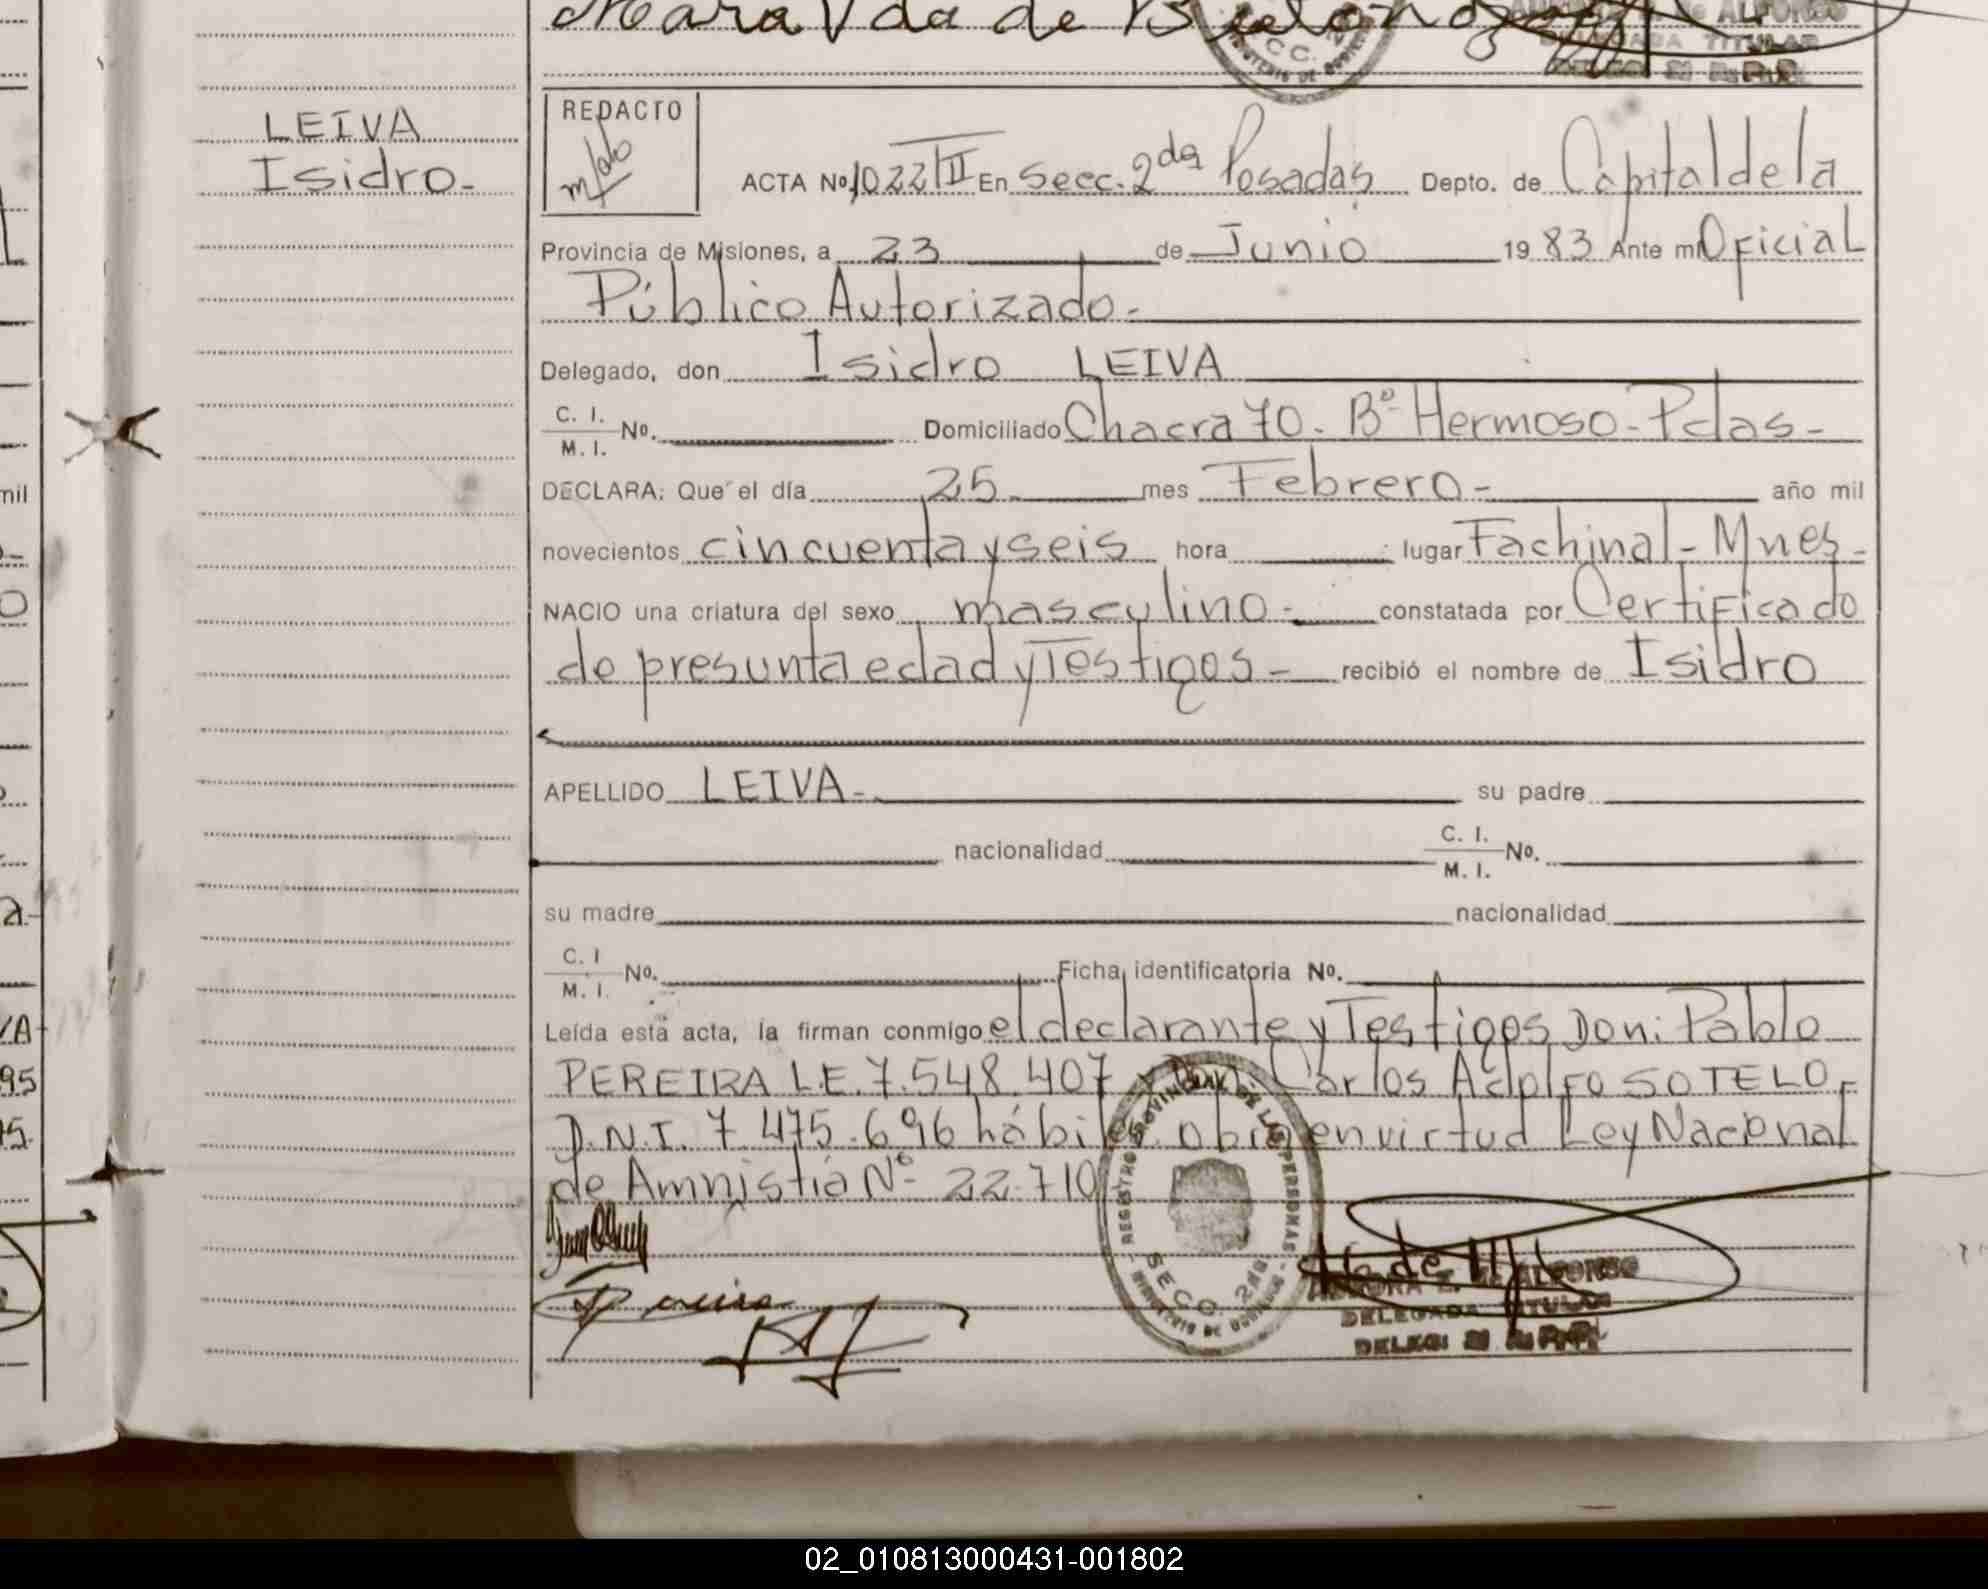 Mara Vda de
ALFONSO
TITULAR
LEIVA
Isidro.-
REDACTO
ACTA No. 1022/II En Secc. 2da Posadas Depto. de Capital de la
Provincia de Misiones, a 23 de Junio 19 83 Ante mi Oficial
Público Autorizado.-
Delegado, don Isidro LEIVA
C. I.
M. I. No. Domiciliado Chacra 70 - Bº Hermoso - Pdas -
DECLARA: Que el día 25 mes Febrero - año mil
novecientos cincuenta y seis hora lugar Fachinal - Mnes -
NACIO una criatura del sexo masculino - constatada por Certificado
de presunta edad y Testigos - recibió el nombre de Isidro
APELLIDO LEIVA - su padre
nacionalidad C. I.
M. I. No.
su madre nacionalidad
C. I
M. I. No. Ficha identificatoria No.
Leída esta acta, la firman conmigo el declarante y Testigos Don: Pablo
PEREIRA L.E. 7.548.407 y Don: Carlos Adolfo SOTELO
D.N.I. 7.475.696 hábiles obra en virtud Ley Nacional
de Amnistia Nº 22.710
REGISTRO PROVINCIAL DE LAS PERSONAS
SECC. 2da
ALFONSO
DELEGADA TITULAR
mil
VA
95
02_010813000431-001802